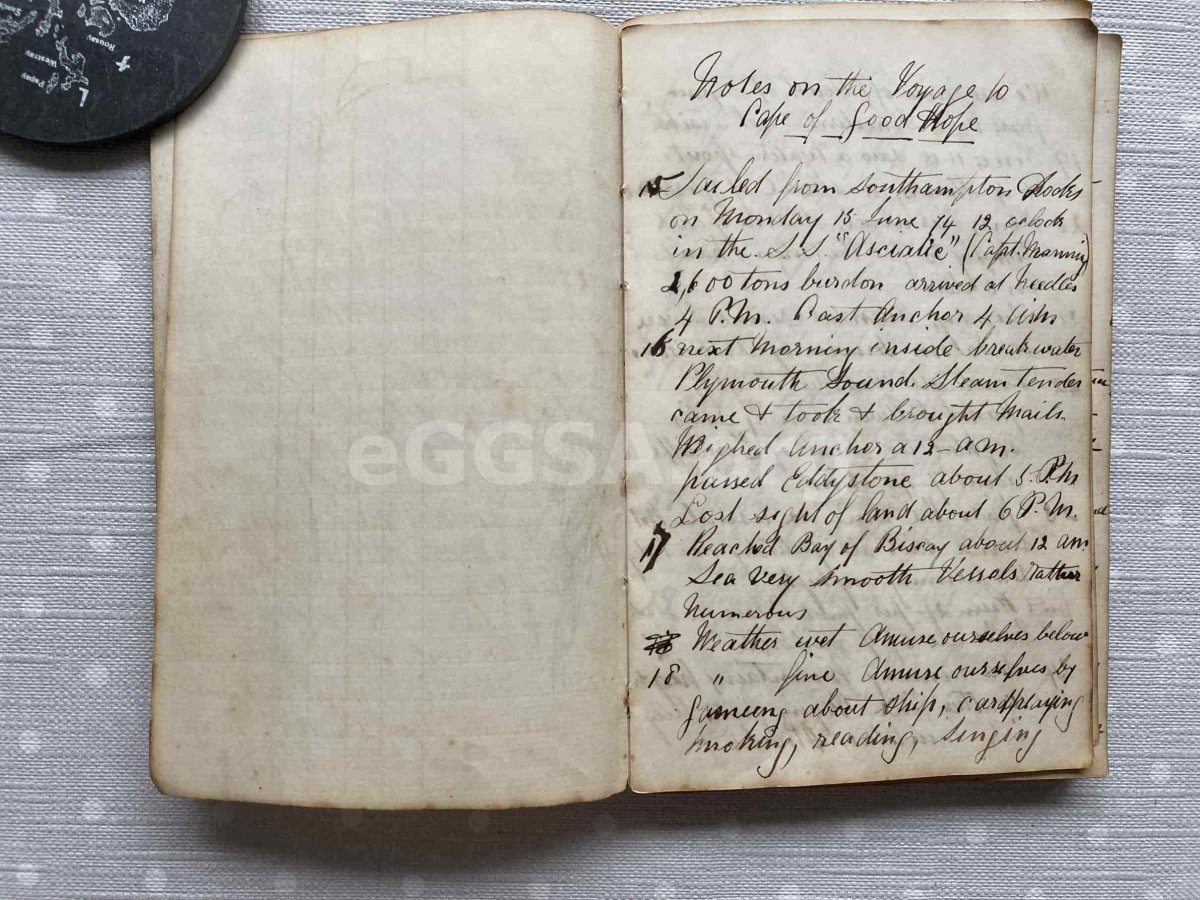 Rousay
Westray
Papay
L
Notes on the Voyage to
Cape of Good Hope
15 Sailed from Southampton Docks
on Monday 15 June 74 12 oclock
in the S.S. "Asciatic" (Capt. Manning)
2,600 tons burdon arrived at Needles
4 P.M. Cast Anchor 4 A.M
16 next Morning inside breakwater
Plymouth Sound. Steam tender
came & took & brought Mails.
Weighed Anchor a 12 - a m.
passed Eddystone about 5. P.M
Lost sight of land about 6 P. M.
17 Reached Bay of Biscay about 12 am.
Sea very smooth Vessels rather
numerous
Weather wet Amuse ourselves below
18 " fine Amuse ourselves by
gameing about ship, cardplaying
smoking, reading, singing
eGGSA